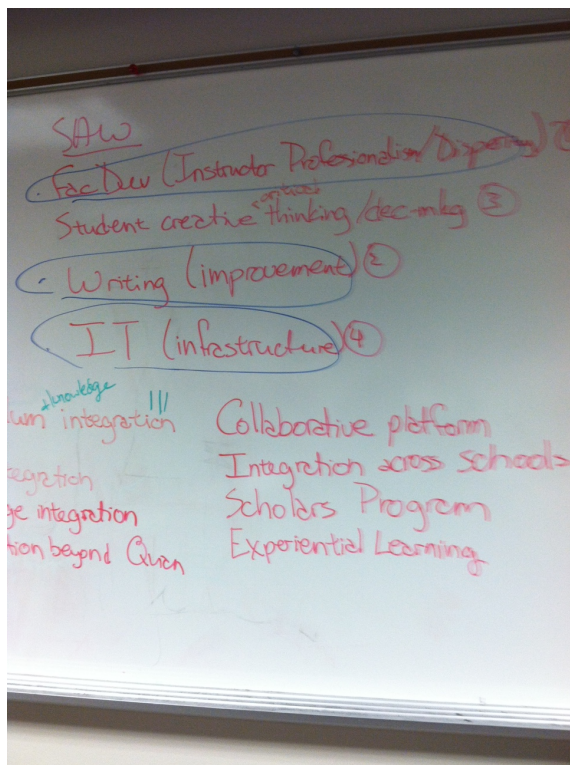 SAW
. Fac Dev (Instructor Professionalism/
critical
Student creative thinking/dec-mkg ③
. Writing (improvement) ②
IT (infrastructure) ④
+knowledge |||
integration
integration
Collaborative platform
Integration across schools
Scholars Program
Experiential Learning
beyond